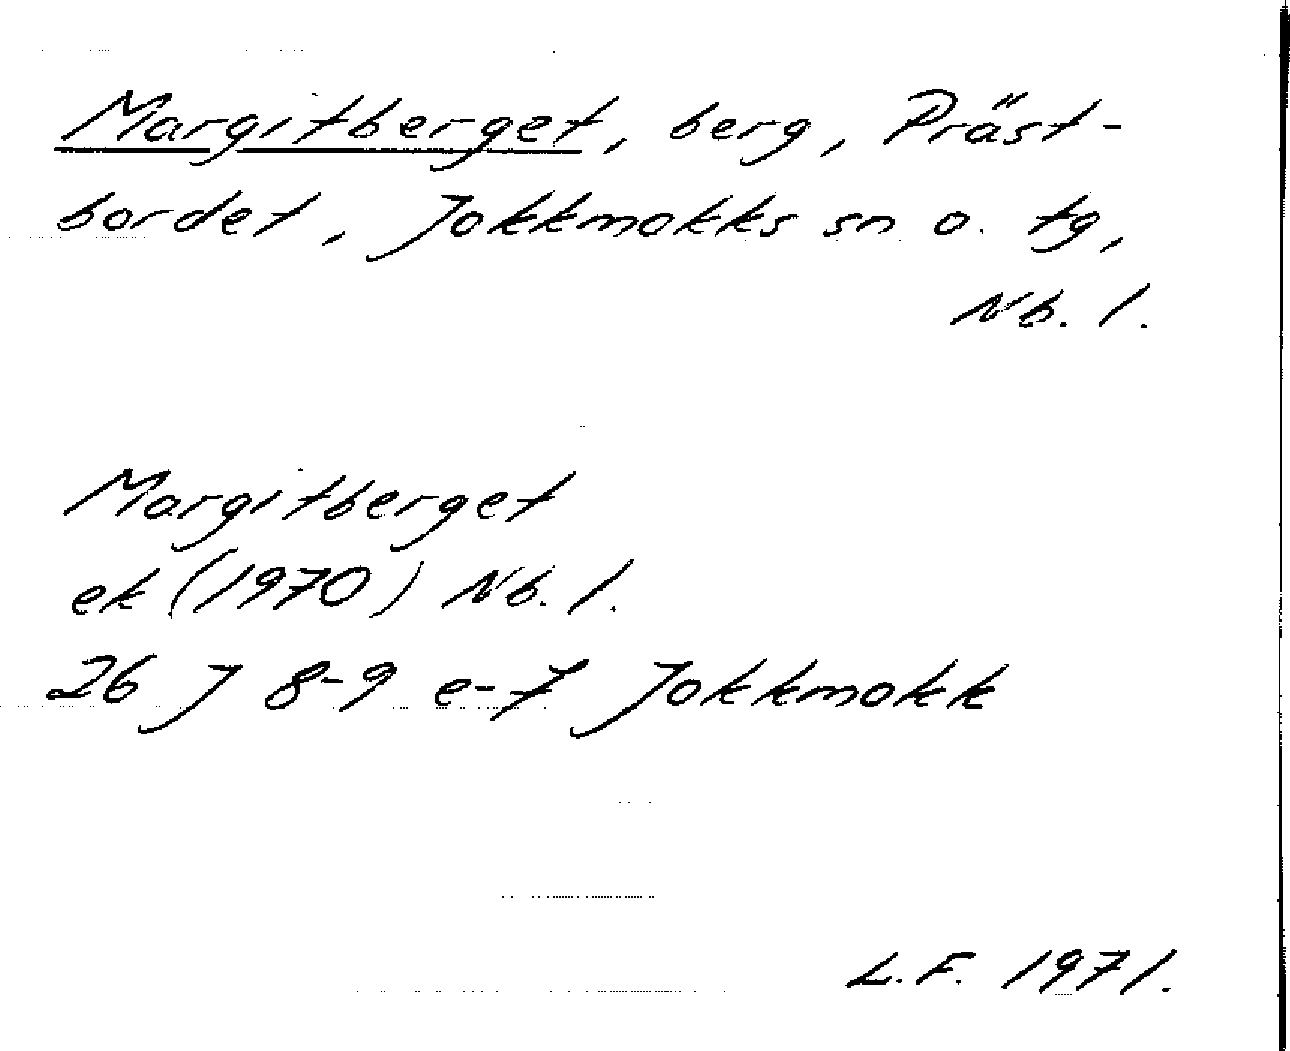 Margitberget, berg, Präst-
bordet, Jokkmokks sn o. tg,
Nb. l.
Margitberget
ek (1970) Nb. l.
26 J 8-9 e-f Jokkmokk
L.F. 1971.